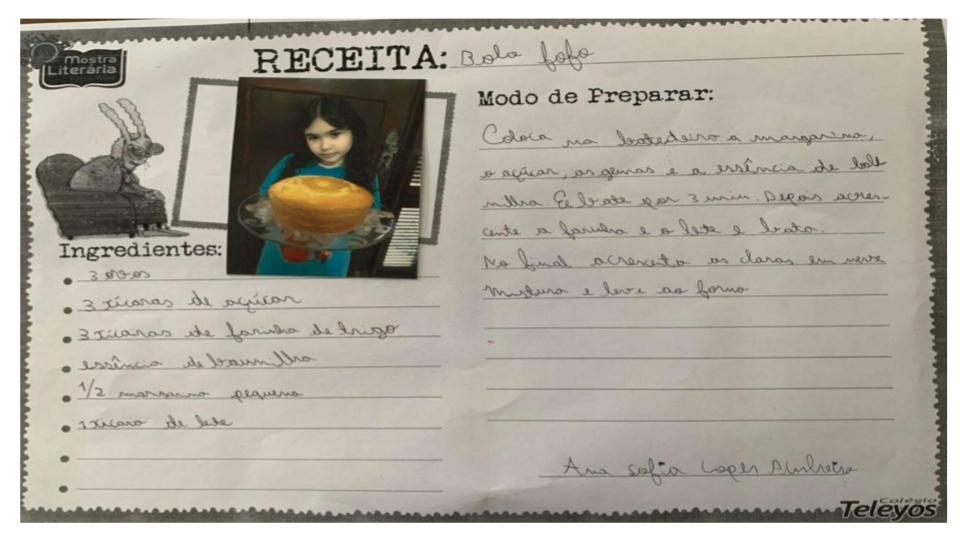 Mostra
Literária
RECEITA: Bolo fofo
Ingredientes:
3 ovos
3 xícaras de açúcar
3 xícaras de farinha de trigo
essência de baunilha
1/2 margarina pequena
1 xícara de leite
Modo de Preparar:
Coloca na batedeira a margarina,
o açúcar, as gemas e a essência de
nilha. e bate por 3 min. Depois acres-
cente a farinha e o leite e bata.
No final acrescenta as claras em neve
Mistura e leve ao forno
Ana Sofia Lopes Pinheiro
Colégio
Teleyos